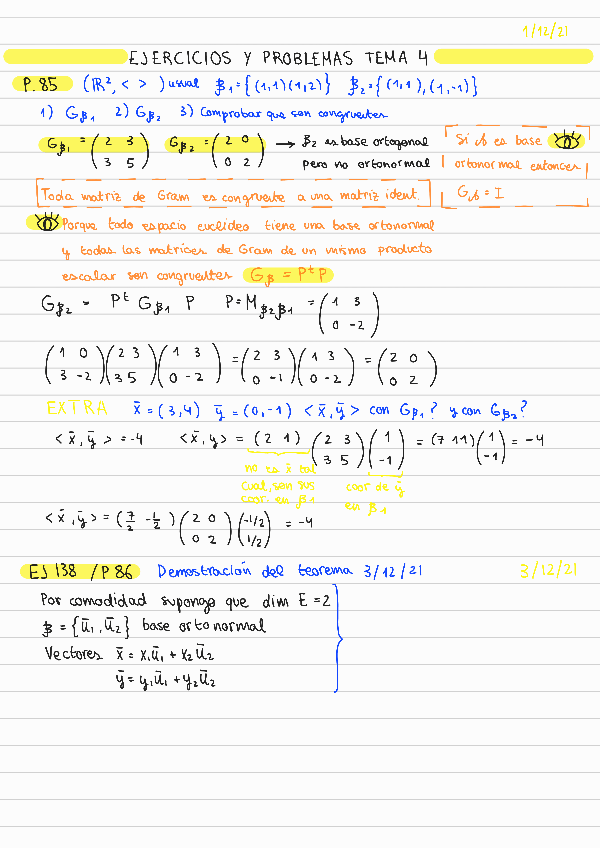 1/12/21
EJERCICIOS Y PROBLEMAS TEMA 4
P. 85 (ℝ², < >) usual β₁={(1,1)(1,2)} β₂={(1,1),(1,-1)}
1) Gβ₁ 2) Gβ₂ 3) Comprobar que son congruentes
Gβ₁ = (2 3; 3 5) Gβ₂ = (2 0; 0 2) → β₂ es base ortogonal
pero no ortonormal
Si β es base
ortonormal entonces
Gβ = I
Toda matriz de Gram es congruente a una matriz ident.
Porque todo espacio euclídeo tiene una base ortonormal
y todas las matrices de Gram de un mismo producto
escalar son congruentes Gβ = PᵗP
Gβ₂ = Pᵗ Gβ₁ P P=Mβ₂β₁ = (1 3; 0 -2)
(1 0; 3 -2)(2 3; 3 5)(1 3; 0 -2) = (2 3; 0 -1)(1 3; 0 -2) = (2 0; 0 2)
EXTRA x̄ = (3,4) ȳ = (0,-1) <x̄,ȳ> con Gβ₁? y con Gβ₂?
<x̄,ȳ> = -4 <x̄,y> = (2 1)(2 3; 3 5)(1; -1) = (7 11)(1; -1) = -4
no es x̄ tal
cual, son sus
coor. en β₁
coor de ȳ
en β₁
<x̄,ȳ> = (7/2 -1/2)(2 0; 0 2)(-1/2; 1/2) = -4
EJ 138 / P 86 Demostración del teorema 3/12/21
3/12/21
Por comodidad supongo que dim E = 2
β = {ū₁, ū₂} base ortonormal
Vectores x̄ = x₁ū₁ + x₂ū₂
ȳ = y₁ū₁ + y₂ū₂